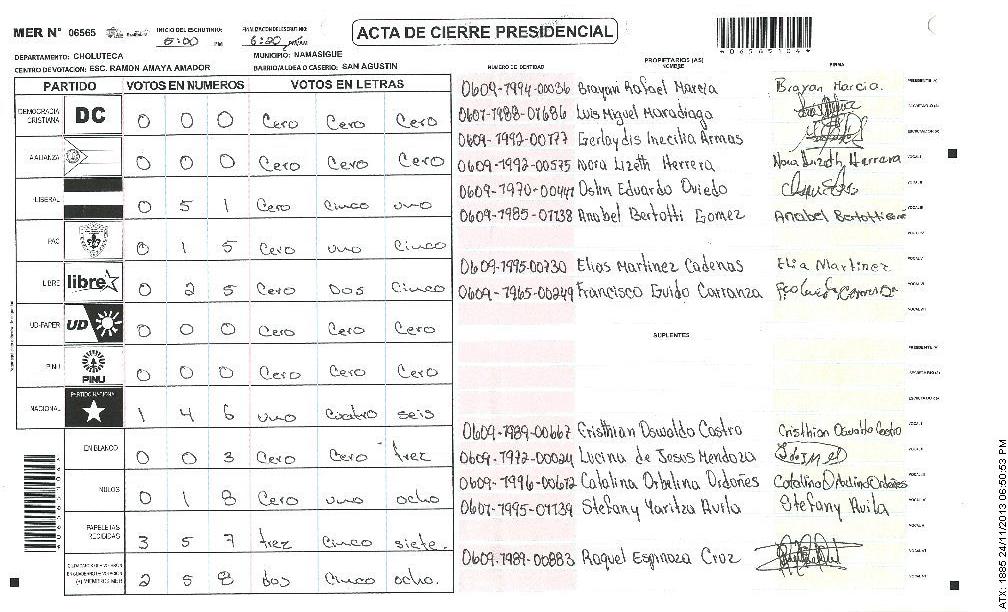 MER N° 06565 INICIO DEL ESCRUTINIO: 5:00 PM FINALIZACION DEL ESCRUTINIO: 6:20
ACTA DE CIERRE PRESIDENCIAL
DEPARTAMENTO: CHOLUTECA MUNICIPIO: NAMASIGUE
CENTRO DE VOTACION: ESC. RAMON AMAYA AMADOR BARRIO/ALDEA O CASERIO: SAN AGUSTIN
PARTIDO VOTOS EN NUMEROS VOTOS EN LETRAS
DEMOCRACIA CRISTIANA DC 0 0 0 Cero Cero Cero
ALIANZA 0 0 0 Cero Cero Cero
LIBERAL 0 5 1 Cero Cinco uno
PAC 0 1 5 Cero uno Cinco
LIBRE libre 0 2 5 Cero Dos Cinco
UD-FAPER UD 0 0 0 Cero Cero Cero
PINU PINU 0 0 0 Cero Cero Cero
NACIONAL PARTIDO NACIONAL 1 4 6 uno cuatro seis
EN BLANCO 0 0 3 Cero Cero trez
NULOS 0 1 8 Cero uno ocho
PAPELETAS RECIBIDAS 3 5 7 trez Cinco siete.
2 5 8 dos Cinco ocho.
NUMERO DE IDENTIDAD PROPIETARIOS (AS) NOMBRE FIRMA
0609-1994-00036 Brayan Rafael Marcia Brayan Marcia.
0607-1988-01686 Luis Miguel Maradiaga
0609-1992-00777 Gerlaydis Inecilia Armas
0609-1992-00575 Nora Lizeth Herrera Nora Lizeth Herrera
0609-1970-00441 Oslin Eduardo Oviedo
0609-1985-01138 Anabel Bertotti Gomez Anabel Bertotti
0609-1995-00730 Elias Martinez Cadenas Elia Martinez
0609-1965-00249 Francisco Guido Carranza
SUPLENTES
0609-1989-00667 Cristhian Oswaldo Castro Cristhian Oswaldo Castro
0609-1972-00024 Lucina de Jesus Mendoza
0609-1996-00672 Catalina Orbelina Ordoñes
0607-1995-01139 Stefany Yaritza Avila Stefany Avila
0609-1989-00883 Raquel Espinoza Cruz
ATX: 1885 24/11/2013 06:50:53 PM